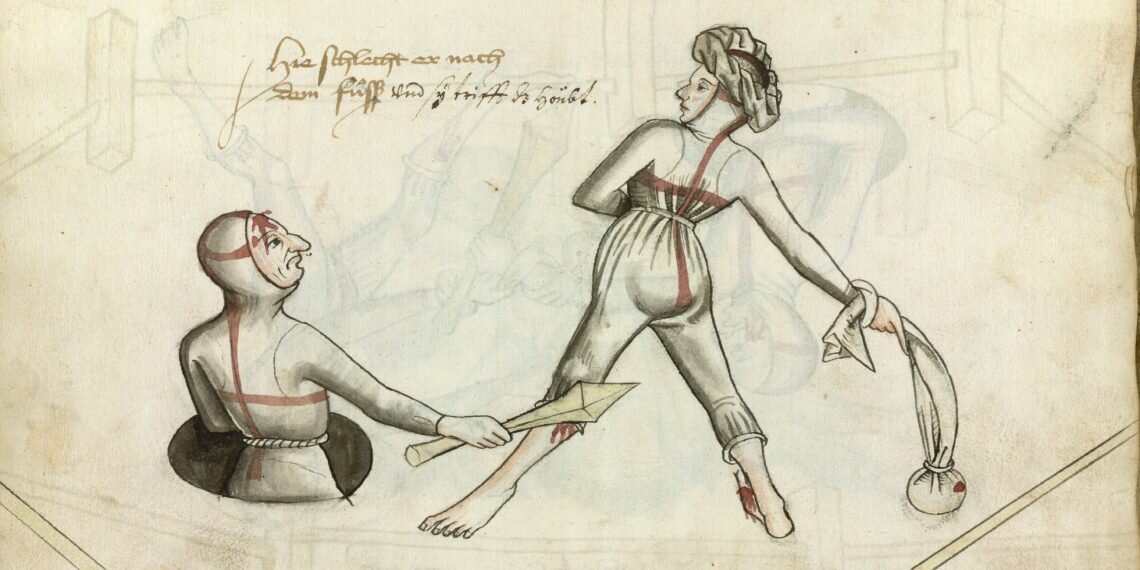 Hie schlecht er nach
dem fůſſ vnd sÿ triff dz hoùbt.